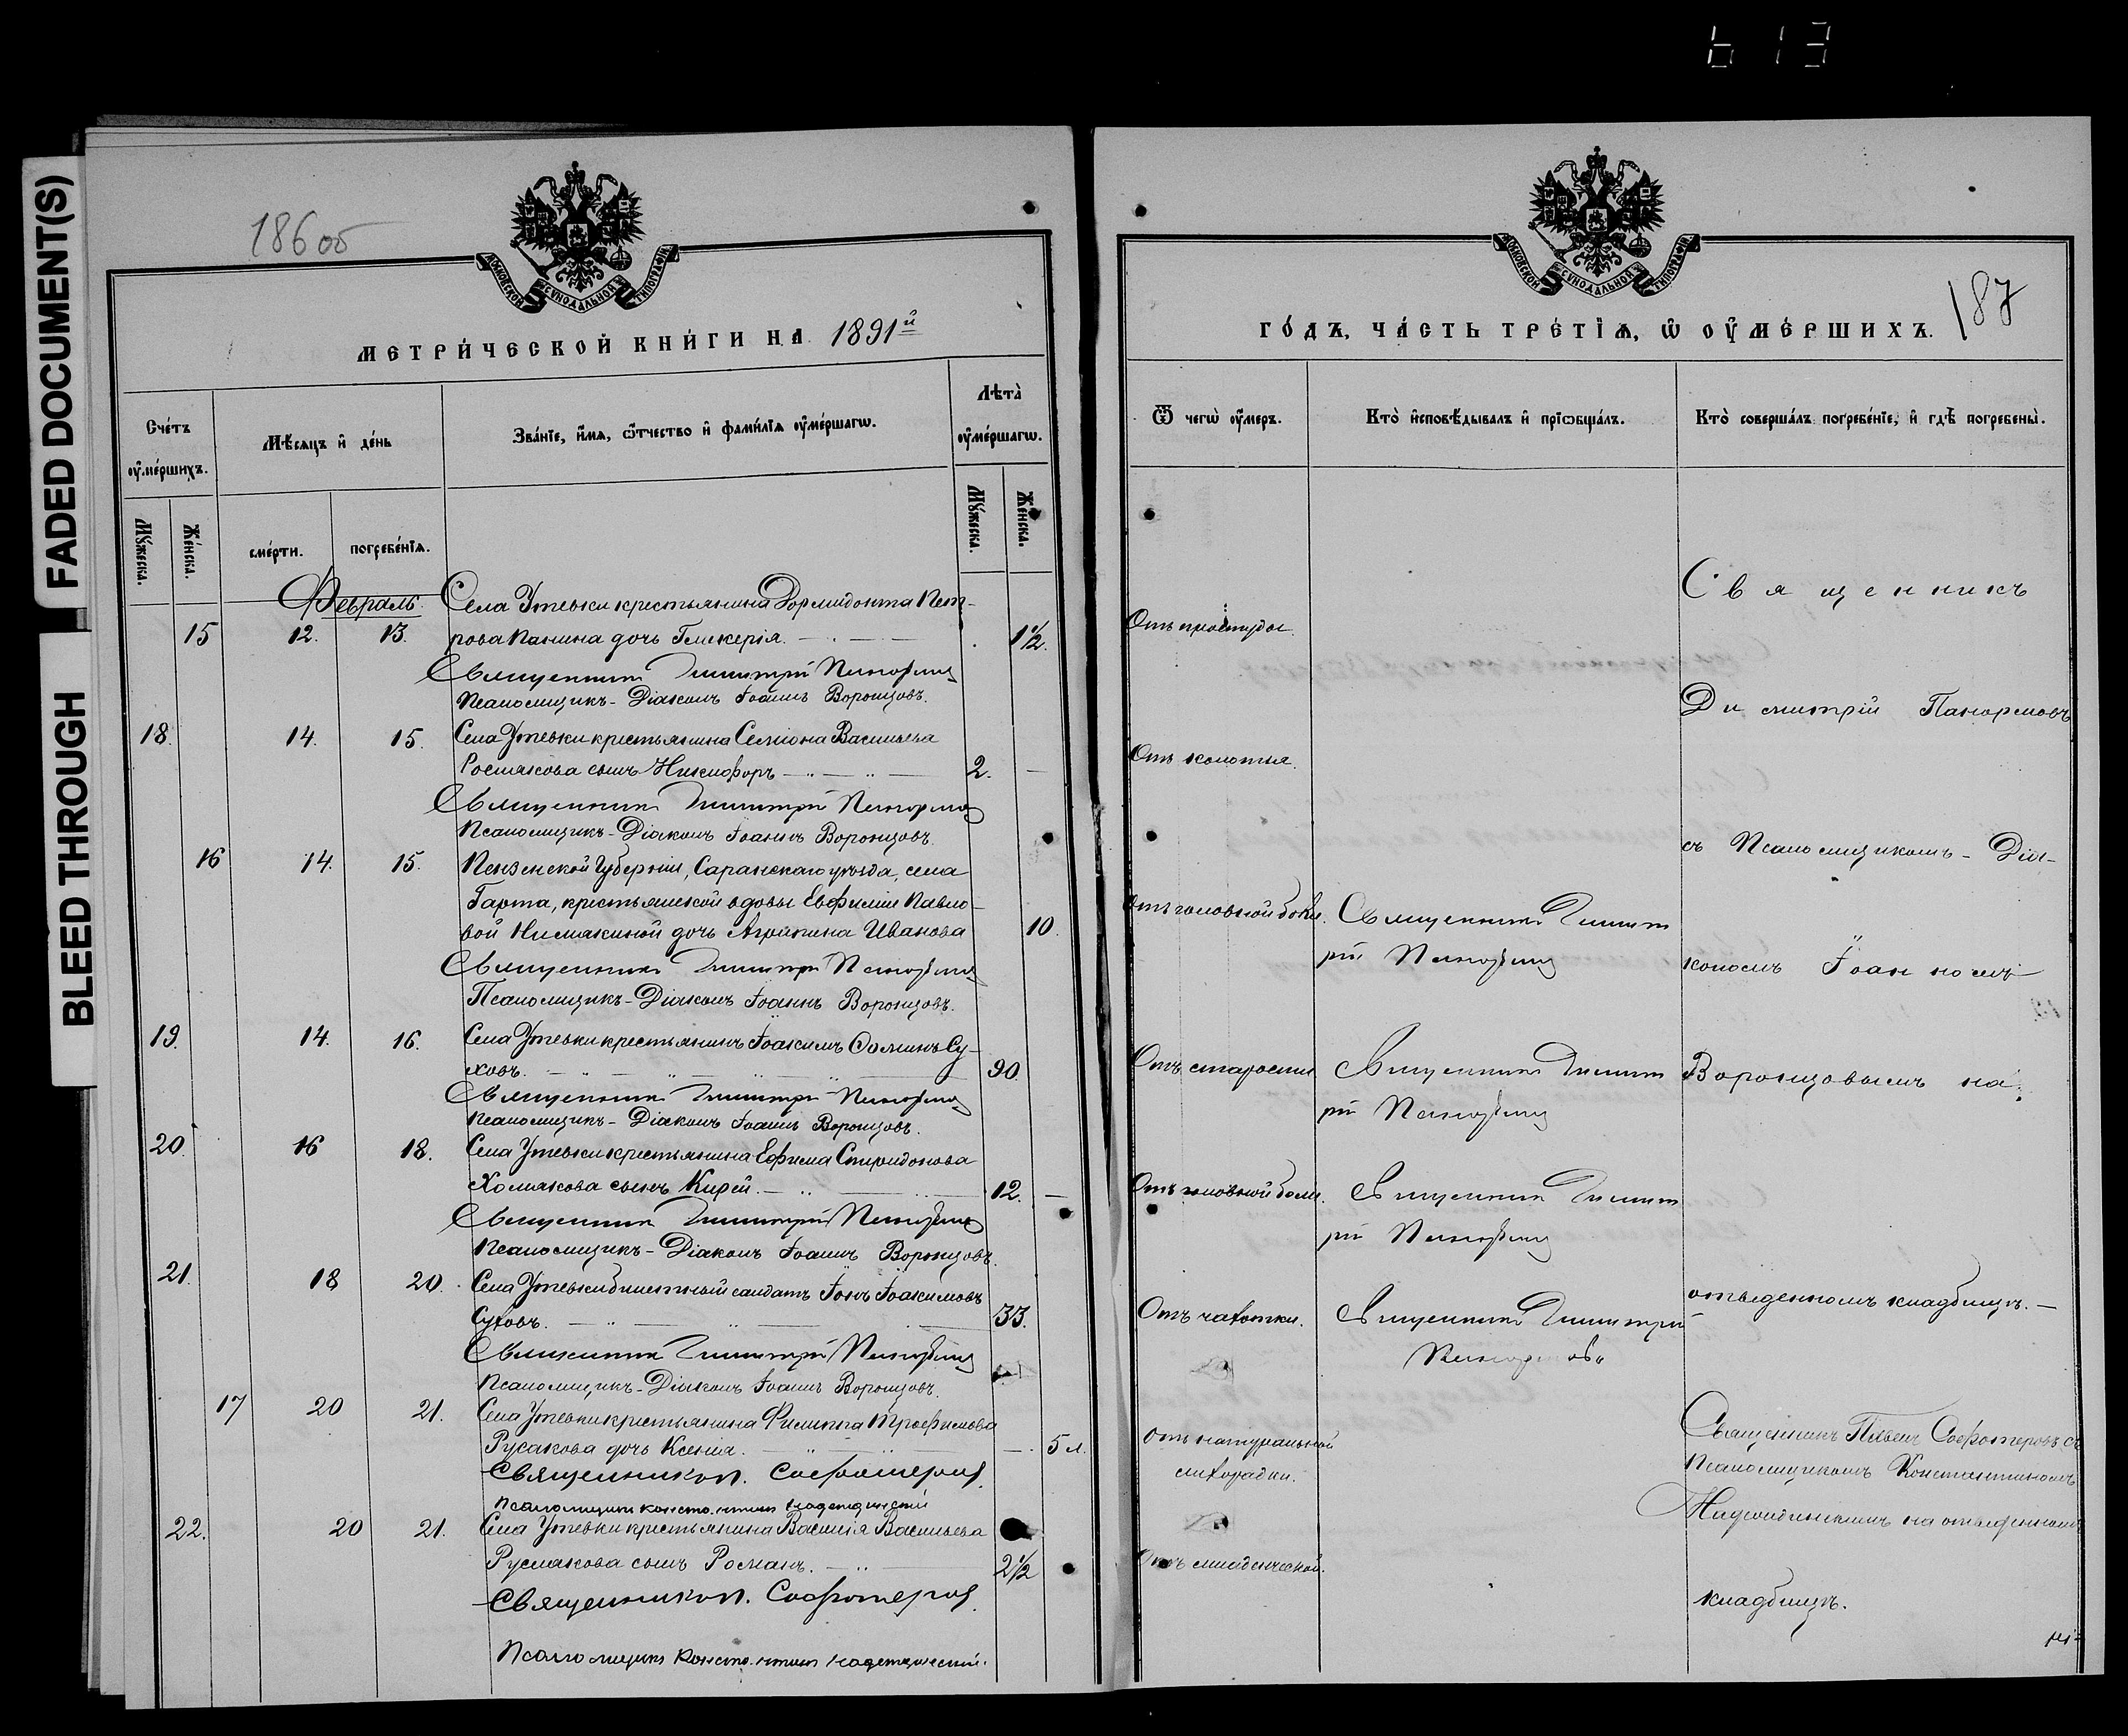 613
FADED DOCUMENT(S)
BLEED THROUGH
186 об
МОСКОВСКОЙ СУНОДАЛЬНОЙ ТИПОГРАФІИ
МЕТРИ́ЧЕСКОЙ КНИ́ГИ НА 1891й
Сче́тъ оу҆ме́ршихъ.
Мѣ́сяцъ и҆ де́нь
Зва́нїе, и҆́мѧ, ѻ҆́тчество и҆ фами́лїѧ оу҆ме́ршагѡ.
Лѣта̀ оу҆ме́ршагѡ.
Мꙋ́жеска.
Же́нска.
сме́рти.
погребе́нїѧ.
Мꙋ́жеска.
Же́нска.
Февраль.
Села Утевки крестьянина Дормидонта Пет-
15 12. 13. рова Панина дочь Гликерія. 1½.
Священникъ Димитрій Панормовъ
Псаломщикъ-Діаконъ Іоаннъ Воронцовъ.
18. 14. 15. Села Утевки крестьянина Семіона Васильева
сынъ Никифоръ 2.
Священникъ Димитрій Панормовъ
Псаломщикъ-Діаконъ Іоаннъ Воронцовъ.
16 14. 15. Пензенской Губерніи, Саранскаго уѣзда, села
Гарта, крестьянской вдовы Евфиміи Павло-
вой дочь Агрипина Иванова 10.
Священникъ Димитрій Панормовъ
Псаломщикъ-Діаконъ Іоаннъ Воронцовъ.
19. 14. 16. Села Утевки крестьянинъ Іоакимъ Ѳоминъ Су-
ховъ. 90.
Священникъ Димитрій Панормовъ
Псаломщикъ-Діаконъ Іоаннъ Воронцовъ.
20. 16 18. Села Утевки крестьянина Ефима Спиридонова
Холмакова сынъ Кирей. 12.
Священникъ Димитрій Панормовъ
Псаломщикъ-Діаконъ Іоаннъ Воронцовъ.
21. 18 20. Села Утевки билетный салдатъ Іонъ Іоакимовъ
Суховъ. 33.
Священникъ Димитрій Панормовъ
Псаломщикъ-Діаконъ Іоаннъ Воронцовъ.
17 20 21. Села Утевки крестьянина Филиппа Трофимова
Русакова дочь Ксенія. 5 л.
Священникъ П. Софотеровъ.
Псаломщикъ Константинъ Надеждинскій
22. 20 21. Села Утевки крестьянина Василія Васильева
сынъ Романъ. 2½
Священникъ П. Софотеровъ.
Псаломщикъ Константинъ Надеждинскій.
МОСКОВСКОЙ СУНОДАЛЬНОЙ ТИПОГРАФІИ
187
ГО́ДЪ, ЧА́СТЬ ТРЕ́ТЇѦ, Ѡ҆ ОУ҆МЕ́РШИХЪ.
Ѿ чегѡ̀ оу҆́меръ.
Кто̀ и҆сповѣ́дывалъ и҆ прїѡбща́лъ.
Кто̀ соверша́лъ погребе́нїе, и҆ гдѣ̀ погребены̀.
Священникъ
Отъ простуды.
Димитрій Панормовъ
Отъ колотья.
съ Псаломщикомъ-Діа-
Отъ головной боли. Священникъ Димит
рій Панормовъ
кономъ Іоанномъ
Отъ старости Священникъ Димит
рій Панормовъ
Воронцовымъ на
Отъ головной боли. Священникъ Димит
рій Панормовъ
отведенномъ кладбищѣ.
Отъ чахотки. Священникъ Димитрій
Панормовъ
Отъ натуральной
лихорадки.
Священникъ Павелъ Софотеровъ съ
Псаломщикомъ Константиномъ
Надеждинскимъ на отведенномъ
Отъ младенческой.
кладбищѣ.